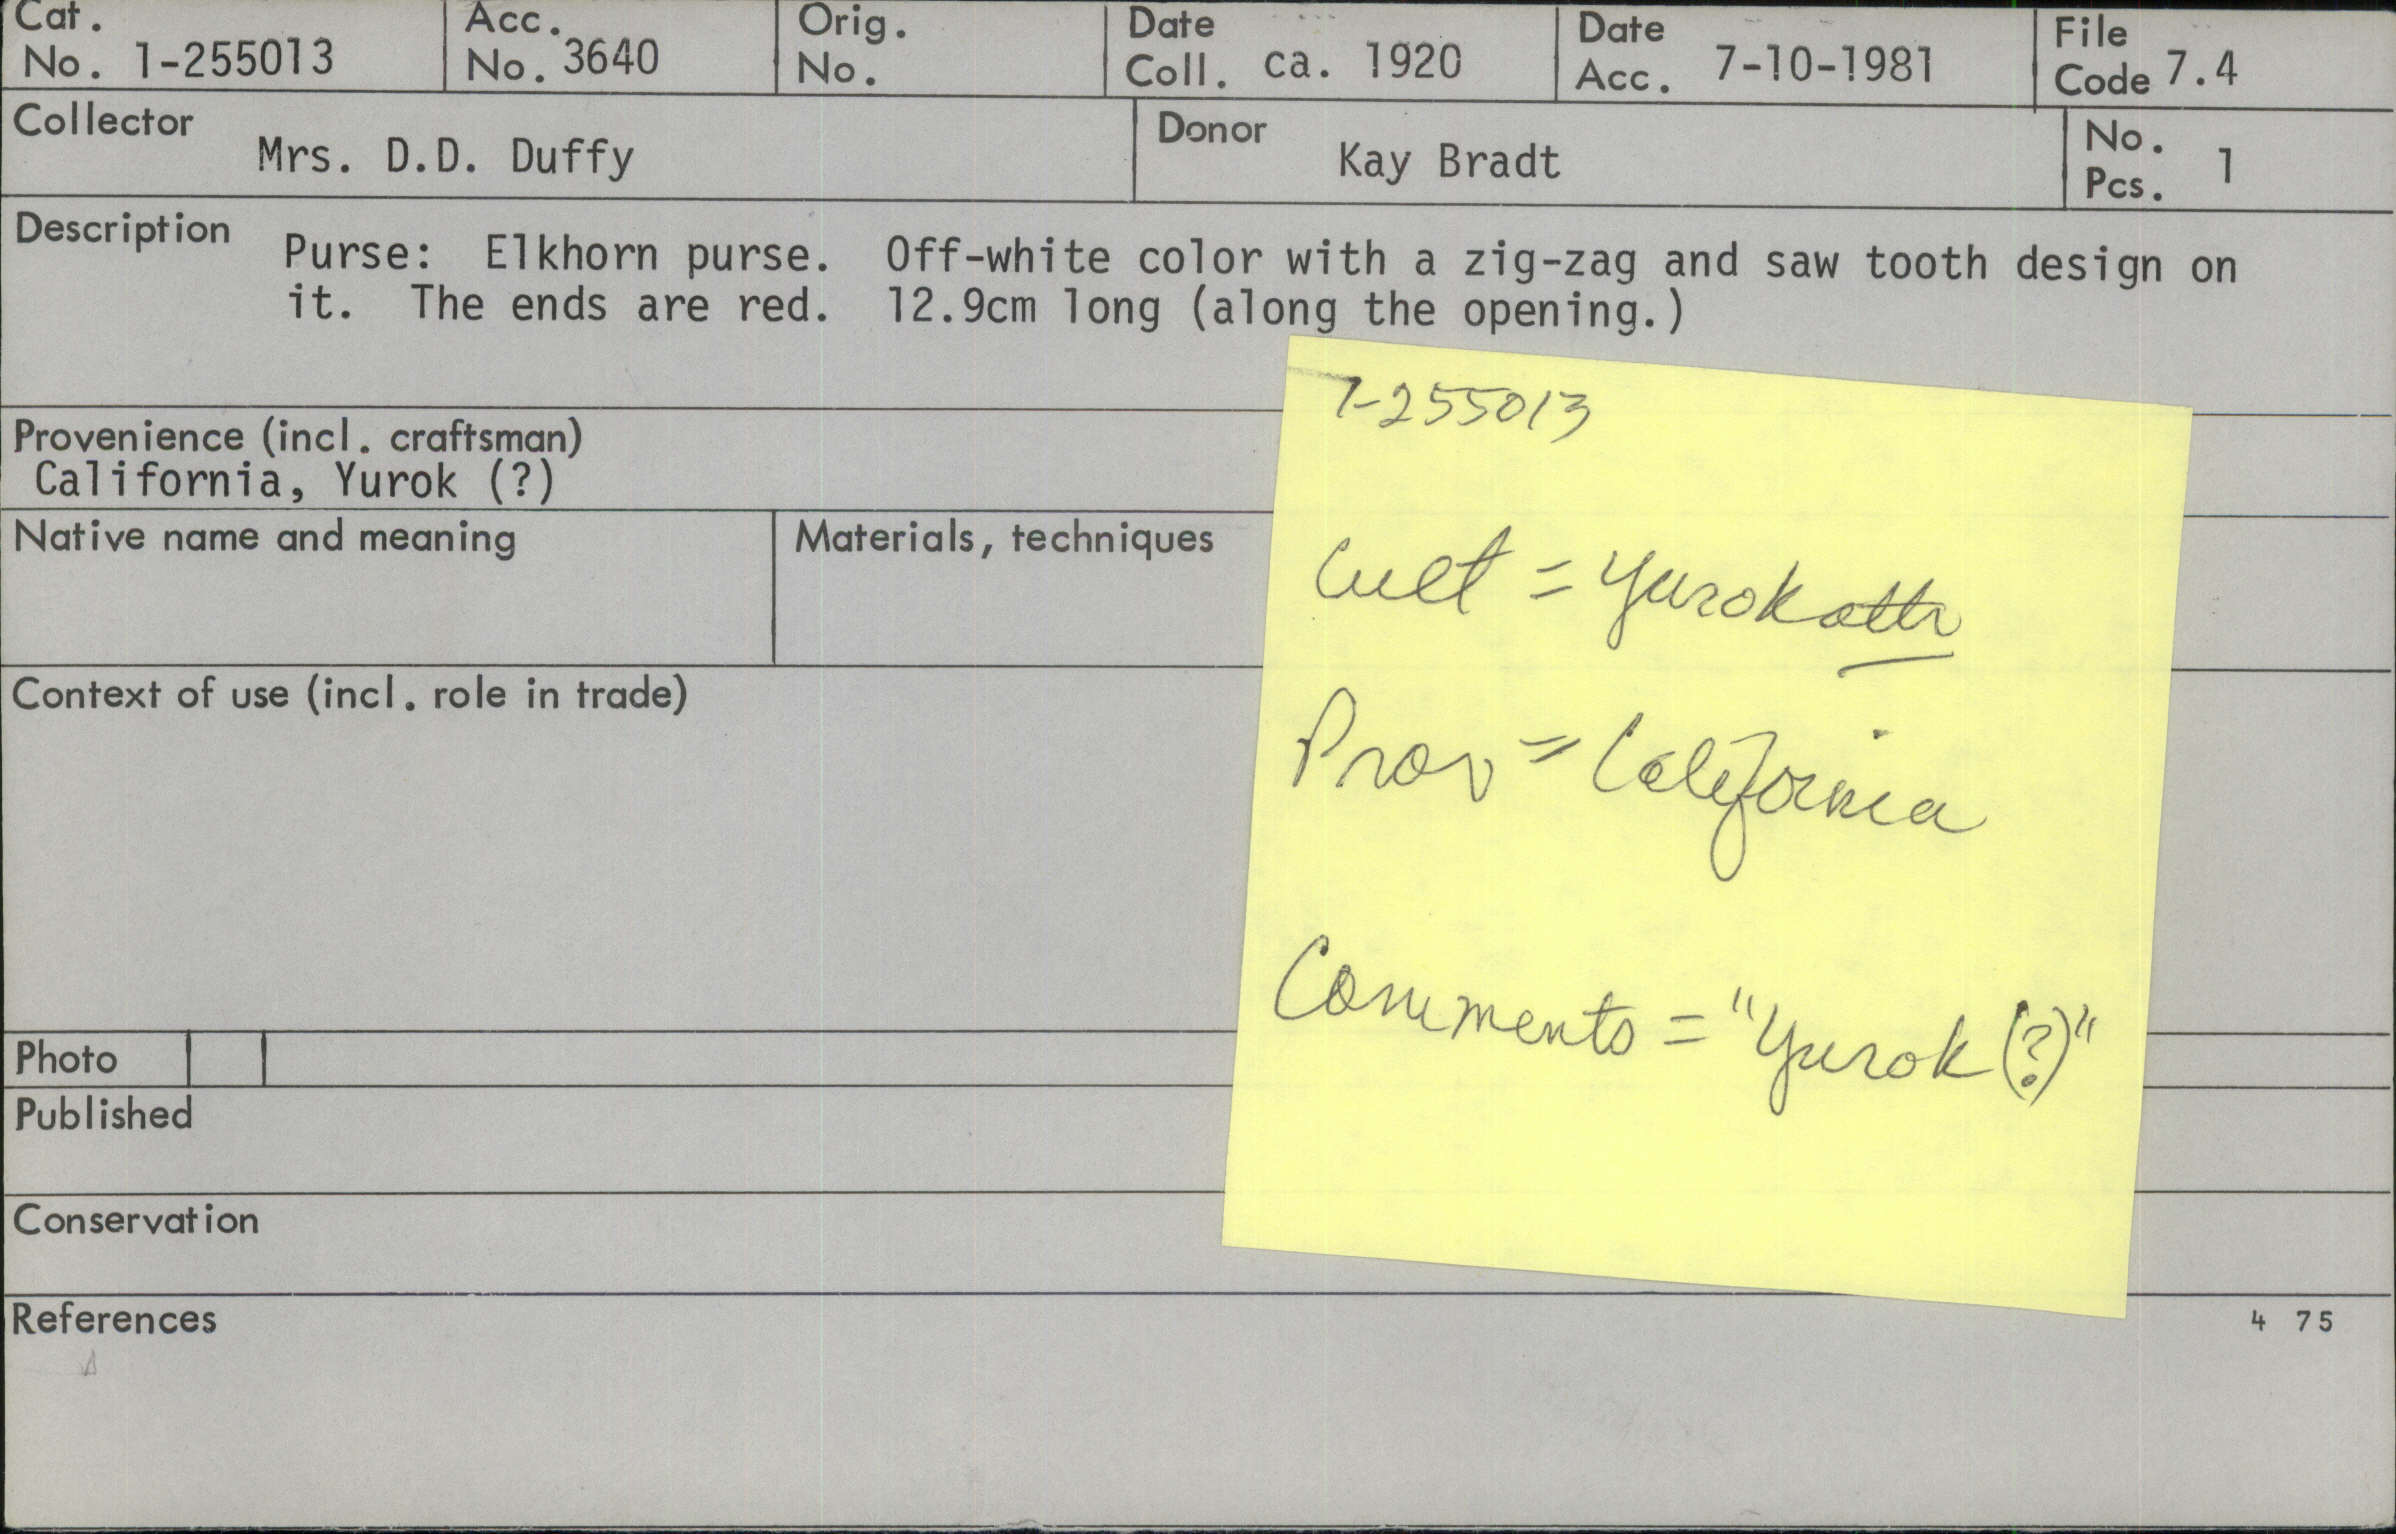 Cat. No. 1-255013
Acc. No. 3640
Orig. No.
Date Coll. ca. 1920
Date Acc. 7-10-1981
File Code 7.4
Collector
Mrs. D.D. Duffy
Donor
Kay Bradt
No. Pcs. 1
Description
Purse: Elkhorn purse. Off-white color with a zig-zag and saw tooth design on
it. The ends are red. 12.9cm long (along the opening.)
Provenience (incl. craftsman)
California, Yurok (?)
Native name and meaning
Materials, techniques
Context of use (incl. role in trade)
Photo
Published
Conservation
References
4 75
1-255013
Cult = Yurok attr
Prov = California
Comments = "Yurok (?)"